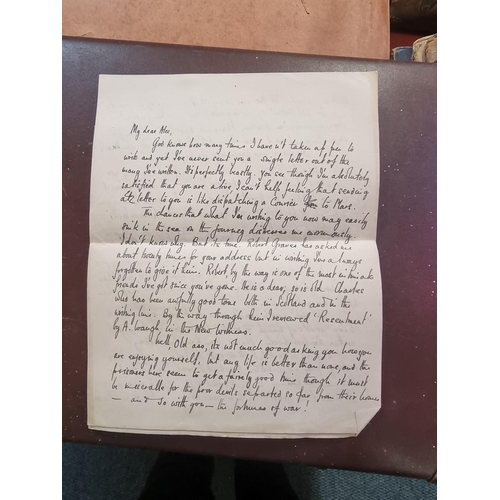 My dear Alec,
God knows how many times I haven't taken up pen to
write and yet I've never sent you a single letter out of the
many I've written. It's perfectly beastly. You see though I'm absolutely
satisfied that you are alive, I can't help feeling that sending
a letter to you is like dispatching a Courier to Mars.
The chances that what I'm writing to you now may easily
sink in the sea on the journey distresses me enormously.
I don't know why. But it's true. Robert Graves has asked me
about twenty times for your address but in writing I've always
forgotten to give it him. Robert by the way is one of the most intimate
friends I've got since you've gone. He is a dear, so is old Charles
who has been awfully good to me both in Scotland and in the
writing line. By the way through him I reviewed 'Resentment'
by A. Waugh, in the New Witness.
Well, Old ass, it's not much good asking you how you
are enjoying yourself, but any life is better than none, and the
prisoners here seem to get a fairly good time though it must
be miserable for the poor devils separated so far from their homes
— and so with you — the fortunes of war!